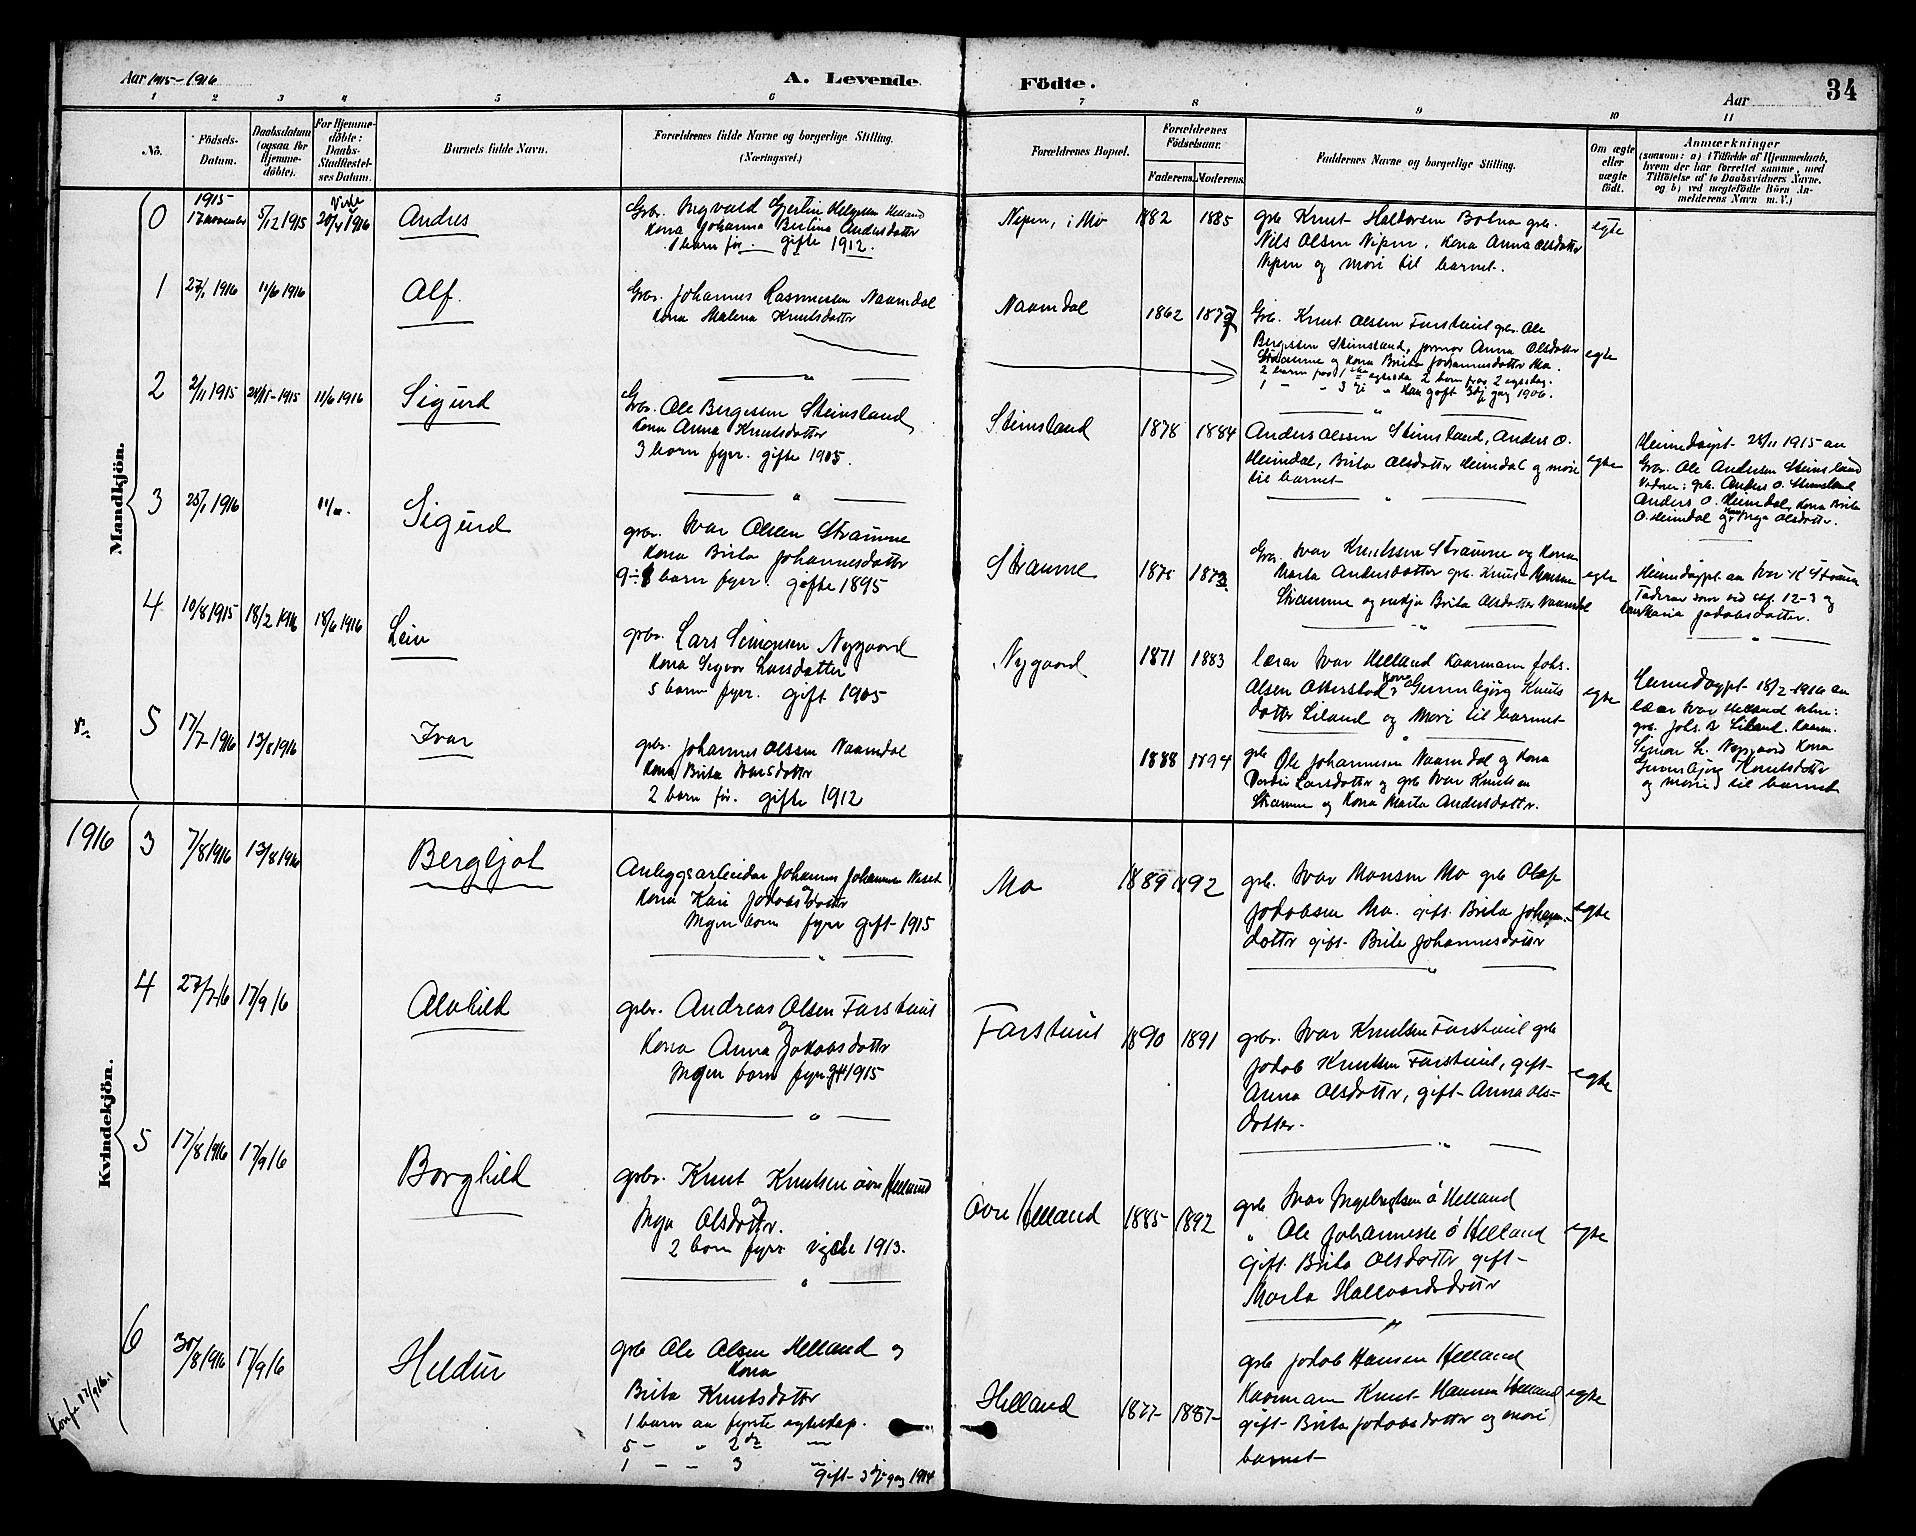 Aar 1915-1916
A. Levende
Födte.
Aar
34
1 2 3 4 5 6 7 8 9 10 11
No.
Födsels-Datum.
Daabsdatum (ogsaa for Hjemmedöbte).
For Hjemmedöbte: Daabs-Stadfæstelses Datum.
Barnets fulde Navn.
Forældrenes fulde Navne og borgerlige Stilling.
(Næringsvei.)
Forældrenes Bopæl.
Forældrenes Födselsaar.
Faderens. Moderens.
Faddernes Navne og borgerlige Stilling.
Om ægte eller uægte födt.
Anmærkninger
(saasom: a) i Tilfælde af Hjemmedaab, hvem der har forrettet samme, med Tilföielse af to Daabsvidners Navne, og b) ved uægtefödte Börn Anmelderens Navn m. V.)
Mandkjön.
0 1915 17 november 5/12 1915 1916 Andres
Gbr. Ingvald Gjertin Helgesen Helland
Kona Johanna Bertina Andersdotter
1 barn för. gifte 1912.
Nipen, i Mo 1882 1885
grb. Knut Haldorsen Botna grb.
Nils Olsen Nipen, Kona Anna Olsdotter
Nipen og mori til barnet.
egte
1 27/1 1916 11/6 1916 Alf.
Gbr. Johannes Rasmussen Naamdal
Kona Malena Knutsdotter
Naamdal 1862 1877
Grb. Knut Olsen Farstveit grb. Ole
Bergesen Steinsland, Anna Olsdotter
Straume og Kona Brita Johannesdotter Mo.
egte
2 2/11 1915 28/11-1915 11/6 1916 Sigurd
Gbr. Ole Bergesen Steinsland,
Kona Anna Knutsdotter
3 born fyrr. gifte 1905.
Steinsland 1878 1884
Anders Olssen Steinsland, Anders O.
Heimdal, Brita Olsdotter Heimdal og mori
til barnet
egte
Heimedöypt 28/11 1915 av
Gbr. Ole Andersen Steinsland
Vidner: grb. Anders O. Steinsland
Anders O. Heimdal, Kona Brita
O. Heimdal og Inga Olsdotter.
3 25/1 1916 Sigurd
gbr. Ivar Olsen Straume
Kona Brita Johannesdotter
born fyrr. gifte 1895
Straume 1873.
Gbr. Ivar Knutsen Straume og Kona
Marta Andersdotter grb. Knut Monsen
Straume og enkja Brita Olsdotter Naamdal
egte
Heimedöypt av Ivar K Straume
Fadrar som ved 12-3 og
Maria Jakobsdotter.
4 10/8 1915 18/2 1916 18/6 1916 Leiv
gbr. Lars Simonsen Nygaard
Kona Sigvor Larsdotter
5 born fyrr. gift 1905
Nygaard 1871 1883
lærar Ivar Helland Kaarmann Johs.
Olsen Otterstad, Kona Gunnbjörg Knuts
dotter Liland og Mori til barnet
egte
Heimedöypt 18/2-1916 av
lærar Ivar Helland
grb. Johs. Liland. Kaarm.
Simon L. Nygaard Kona
Gunnbjörg Knutsdotter
og mori til barnet
5 17/7-1916 13/8 1916 Ivar
gbr. Johannes Olssen Naamdal
Kona Brita Ivarsdotter
2 born för. gifte 1912
1888 1894
grb Ole Johannesen Naamdal og Kona
Larsdotter og grb Ivar Knutsen
Straume og Kona Marta Andersdotter.
Kvindekjön.
1916
3 7/8 1916 13/8 1916 Bergljot
Anleggsarbeidar Johannes Johannesen Neset
og Kona Kari Jakobsdotter
Ingen born fyrr gift 1915
Mo 1889 1892
grb. Ivar Monsen Mo grb Olaf
Jakobsen Mo. gift. Brita Johannes-
dotter gift- Brita Johannesdotter
egte
4 27/7-16 17/9 16 Alvhild
gbr. Andreas Olsen Farstveit
og Kona Anna Jakobsdotter
Ingen born fyrr gift 1915
Farstveit 1890 1891
grbr. Ivar Knutsen Farstveit grb
Jakob Knutsen Farstveit, gift-
Anna Olsdotter, gift- Anna Ols=
dotter.
egte
5 17/8 1916 17/9 16 Borghild
gbr. Knut Knutsen övre Helland
og Inga Olsdotter.
2 born fyrr vigde 1913.
Övre Helland 1885- 1892
grb Ivar Ingebrigtsen ö Helland
" Ole Johannesse ö Helland
gift. Brita Olsdotter gift-
Marta Hallvardsdotter
egte
6 30/8 1916 17/9 16 Heldur
grb Ole Olsen Helland og
Kona
Brita Knutsdotter
1 barn av fyrste egteskap.
5 - " 2 "
1 - - 3 "
gift- 3dje gang 1914
Helland 1877- 1887-
grb Jakob Hansen Helland
Kaarmann Knut Hansen Helland
gift- Brita Jakobsdotter og mori
barnet
egte